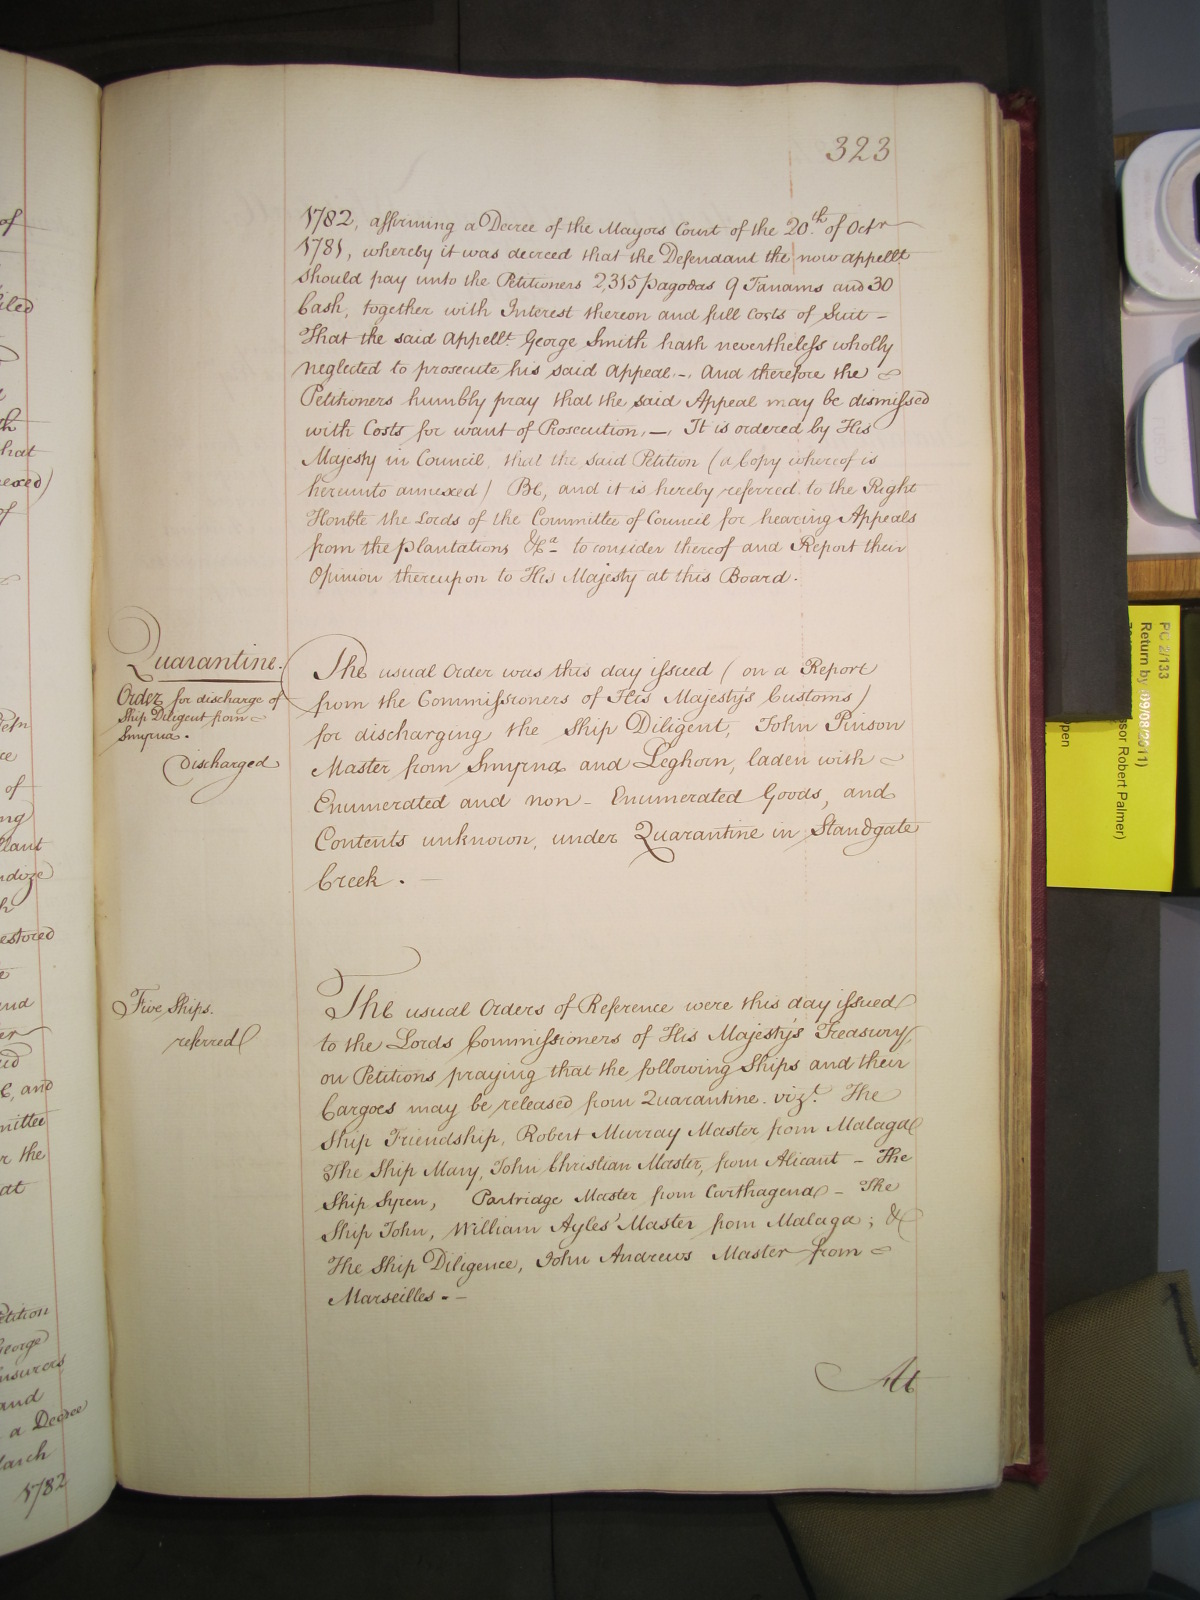 323
1782, affirming a Decree of the Mayors Court of the 20.th of Octr
1781, whereby it was decreed that the Defendant the now appellt
should pay unto the Petitioners 2,315 pagodas 9 Fanams and 30
Cash, together with Interest thereon and full Costs of Suit –
That the said Appellt. George Smith hath nevertheless wholly
neglected to prosecute his said Appeal –. And therefore the
Petitioners humbly pray that the said Appeal may be dismissed
with Costs for want of Prosecution, —, It is ordered by His
Majesty in Council, that the said Petition (a Copy whereof is
hereunto annexed) Be, and it is hereby referred to the Right
Honble the Lords of the Committee of Council for hearing Appeals
from the plantations &ca. to consider thereof and Report their
Opinion thereupon to His Majesty at this Board.
Quarantine.
Order for discharge of
Ship Diligent from
Smyrna.
Discharged
The usual Order was this day issued (on a Report
from the Commissioners of His Majesty's Customs)
for discharging the Ship Diligent, John Pinson
Master from Smyrna and Leghorn, laden with
Enumerated and non – Enumerated Goods, and
Contents unknown, under Quarantine in Standgate
Creek. —
Five Ships.
referred
The usual Orders of Reference were this day issued
to the Lords Commissioners of His Majesty's Treasury,
on Petitions praying that the following Ships and their
Cargoes may be released from Quarantine. vizt. The
Ship Friendship, Robert Murray Master from Malaga
The Ship Mary, John Christian Master, from Alicant – The
Ship Syren, Partridge Master from Carthagena – The
Ship John, William Ayles' Master from Malaga; &
The Ship Diligence, John Andrews Master from
Marseilles. –
At
PC 2/133
Return by (09/08/2011)
ssor Robert Palmer)